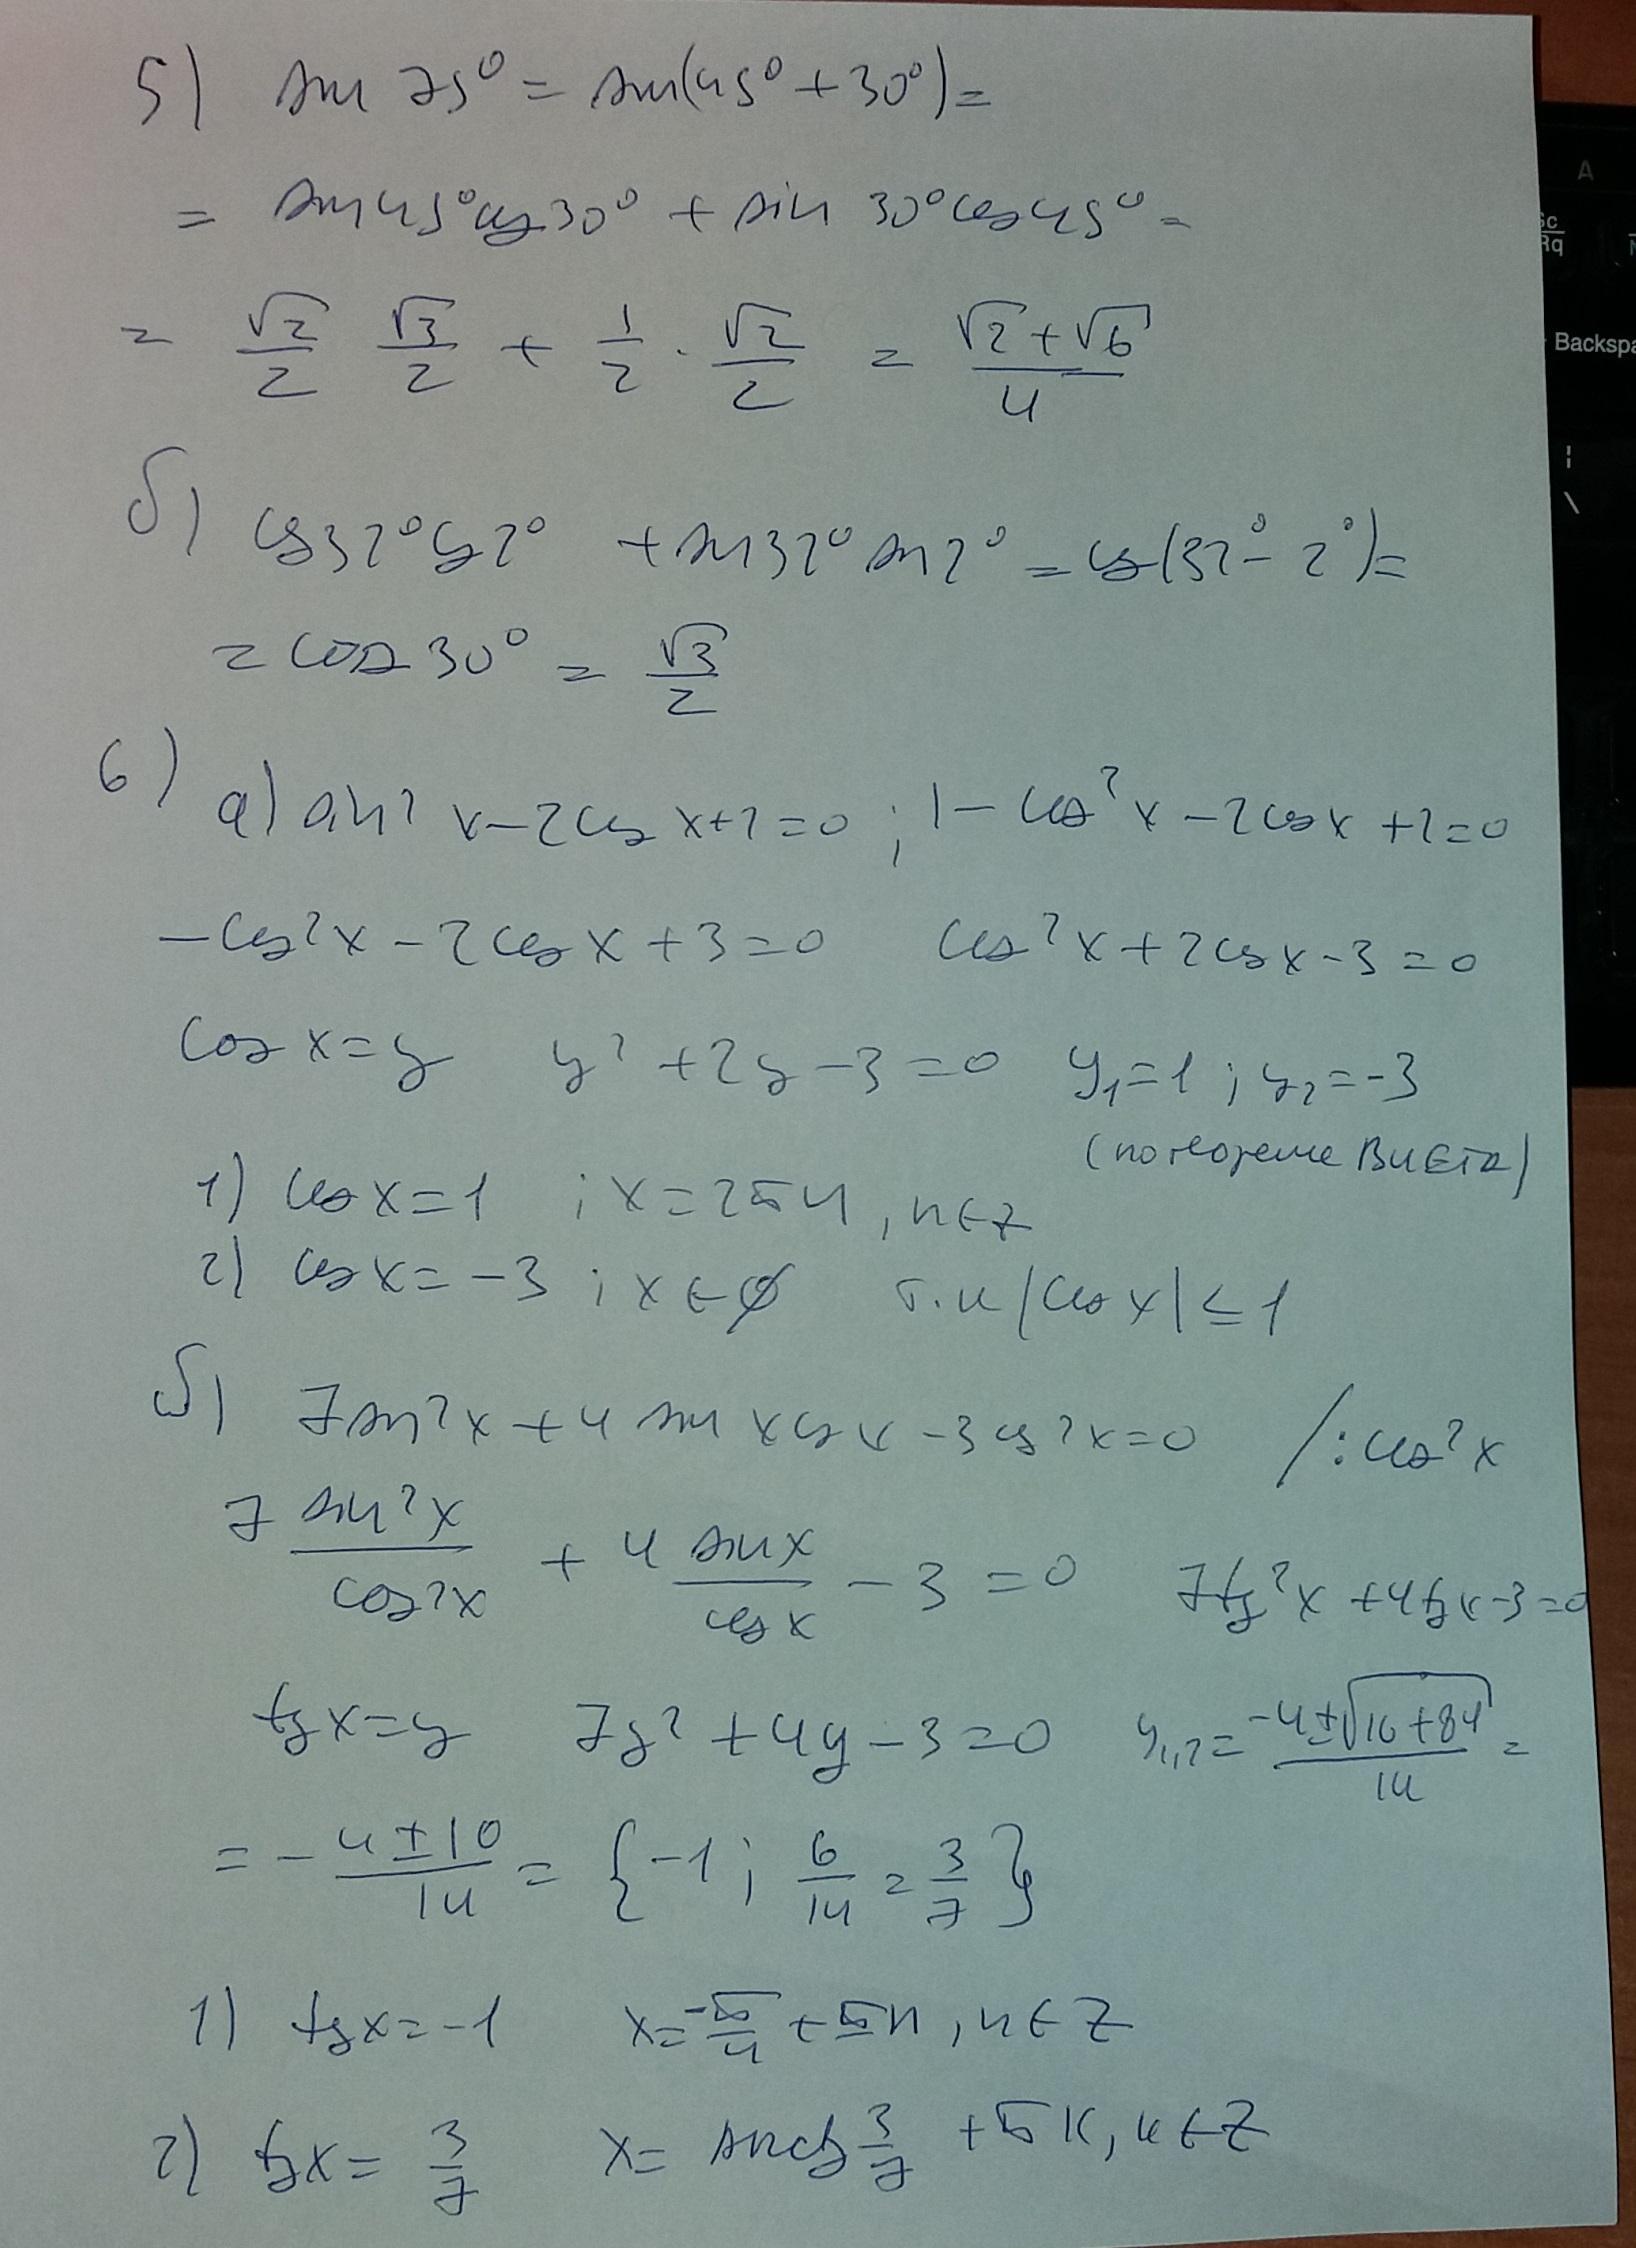 5) sin 75° = sin(45° + 30°) =
= sin45°cos30° + sin 30°cos45° =
= √2/2 √3/2 + 1/2 · √2/2 = (√2+√6)/4
б) cos32°cos2° + sin32° sin2° = cos(32° - 2°) =
= cos 30° = √3/2
6) a) sin² x - 2cos x+2=0 ; 1 - cos²x - 2cosx +2=0
-cos²x - 2cosx + 3=0 cos²x + 2cosx - 3 = 0
cos x=y y² + 2y - 3 = 0 y₁=1 ; y₂=-3
(по теореме ВИЕТА)
1) cos x=1 ; x=2πn, n∈Z
2) cos x= -3 ; x∈∅ т.к |cos x| ≤ 1
б) 7sin²x + 4 sin x cos x - 3cos²x=0 /:cos²x
7 sin²x/cos²x + 4 sinx/cosx - 3 = 0 7tg²x +4tgx-3=0
tgx=y 7y² + 4y - 3=0 y₁,₂= (-4±√16+84)/14 =
= -4±10/14 = {-1; 6/14 = 3/7}
1) tgx=-1 x=-π/4 + πn, n∈Z
2) tgx= 3/7 x= arctg 3/7 + πk, k∈Z
A
Sc
Rq
Backspa
¦
\